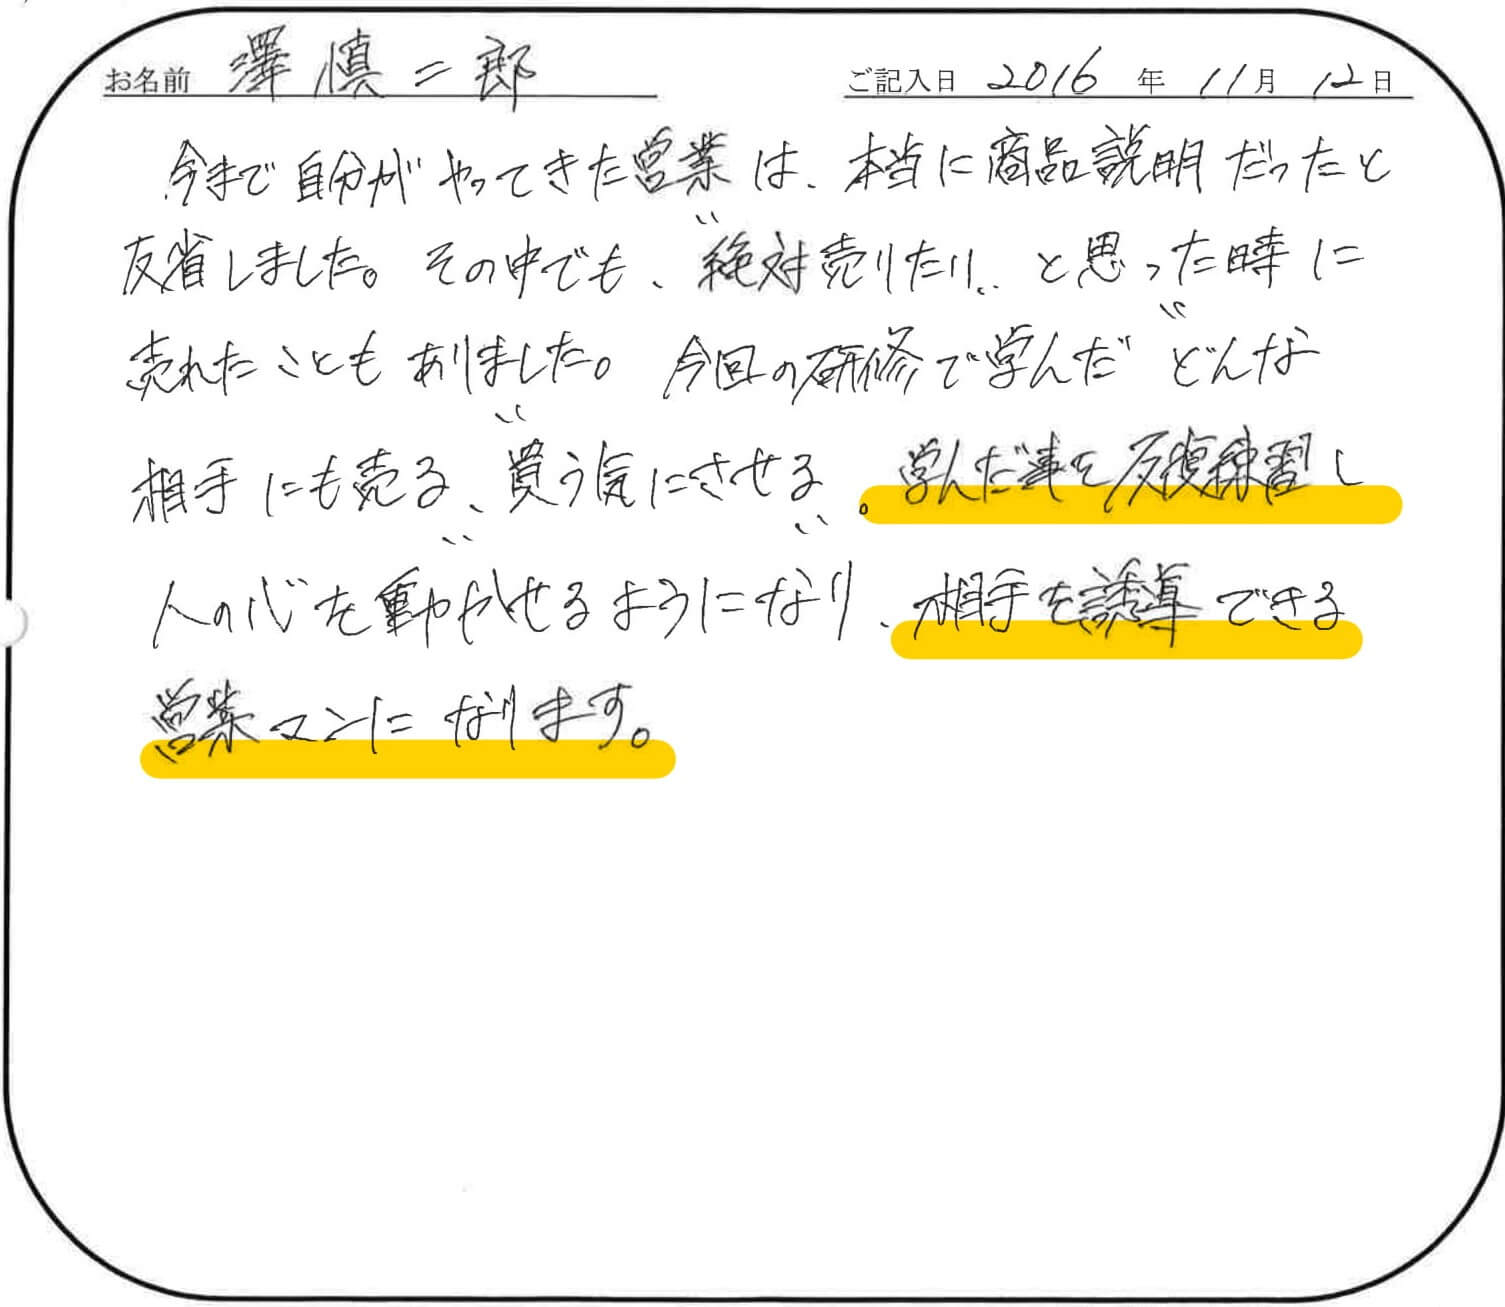 お名前 澤 慎二郎 ご記入日 2016年 11月 12日
今まで自分がやってきた営業は、本当に商品説明だったと
反省しました。その中でも、"絶対売りたい"と思った時に
売れたこともありました。今回の研修で学んだ"どんな
相手にも売る"、"買う気にさせる"。学んだ事を反復練習し
人の心を動かせるようになり、相手を誘導できる
営業マンになります。